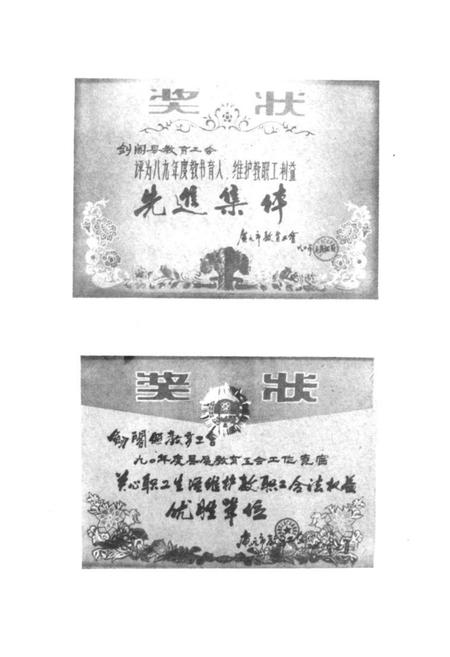 奖 状
剑阁县教育工会
评为八九年度教书育人、维护教职工利益
先進集体
广元市教育工會
奖 状
劍閣县教育工会
九〇年度县区教育工会工作竞赛
关心职工生活维护教职工合法权益
优胜单位
广元市教